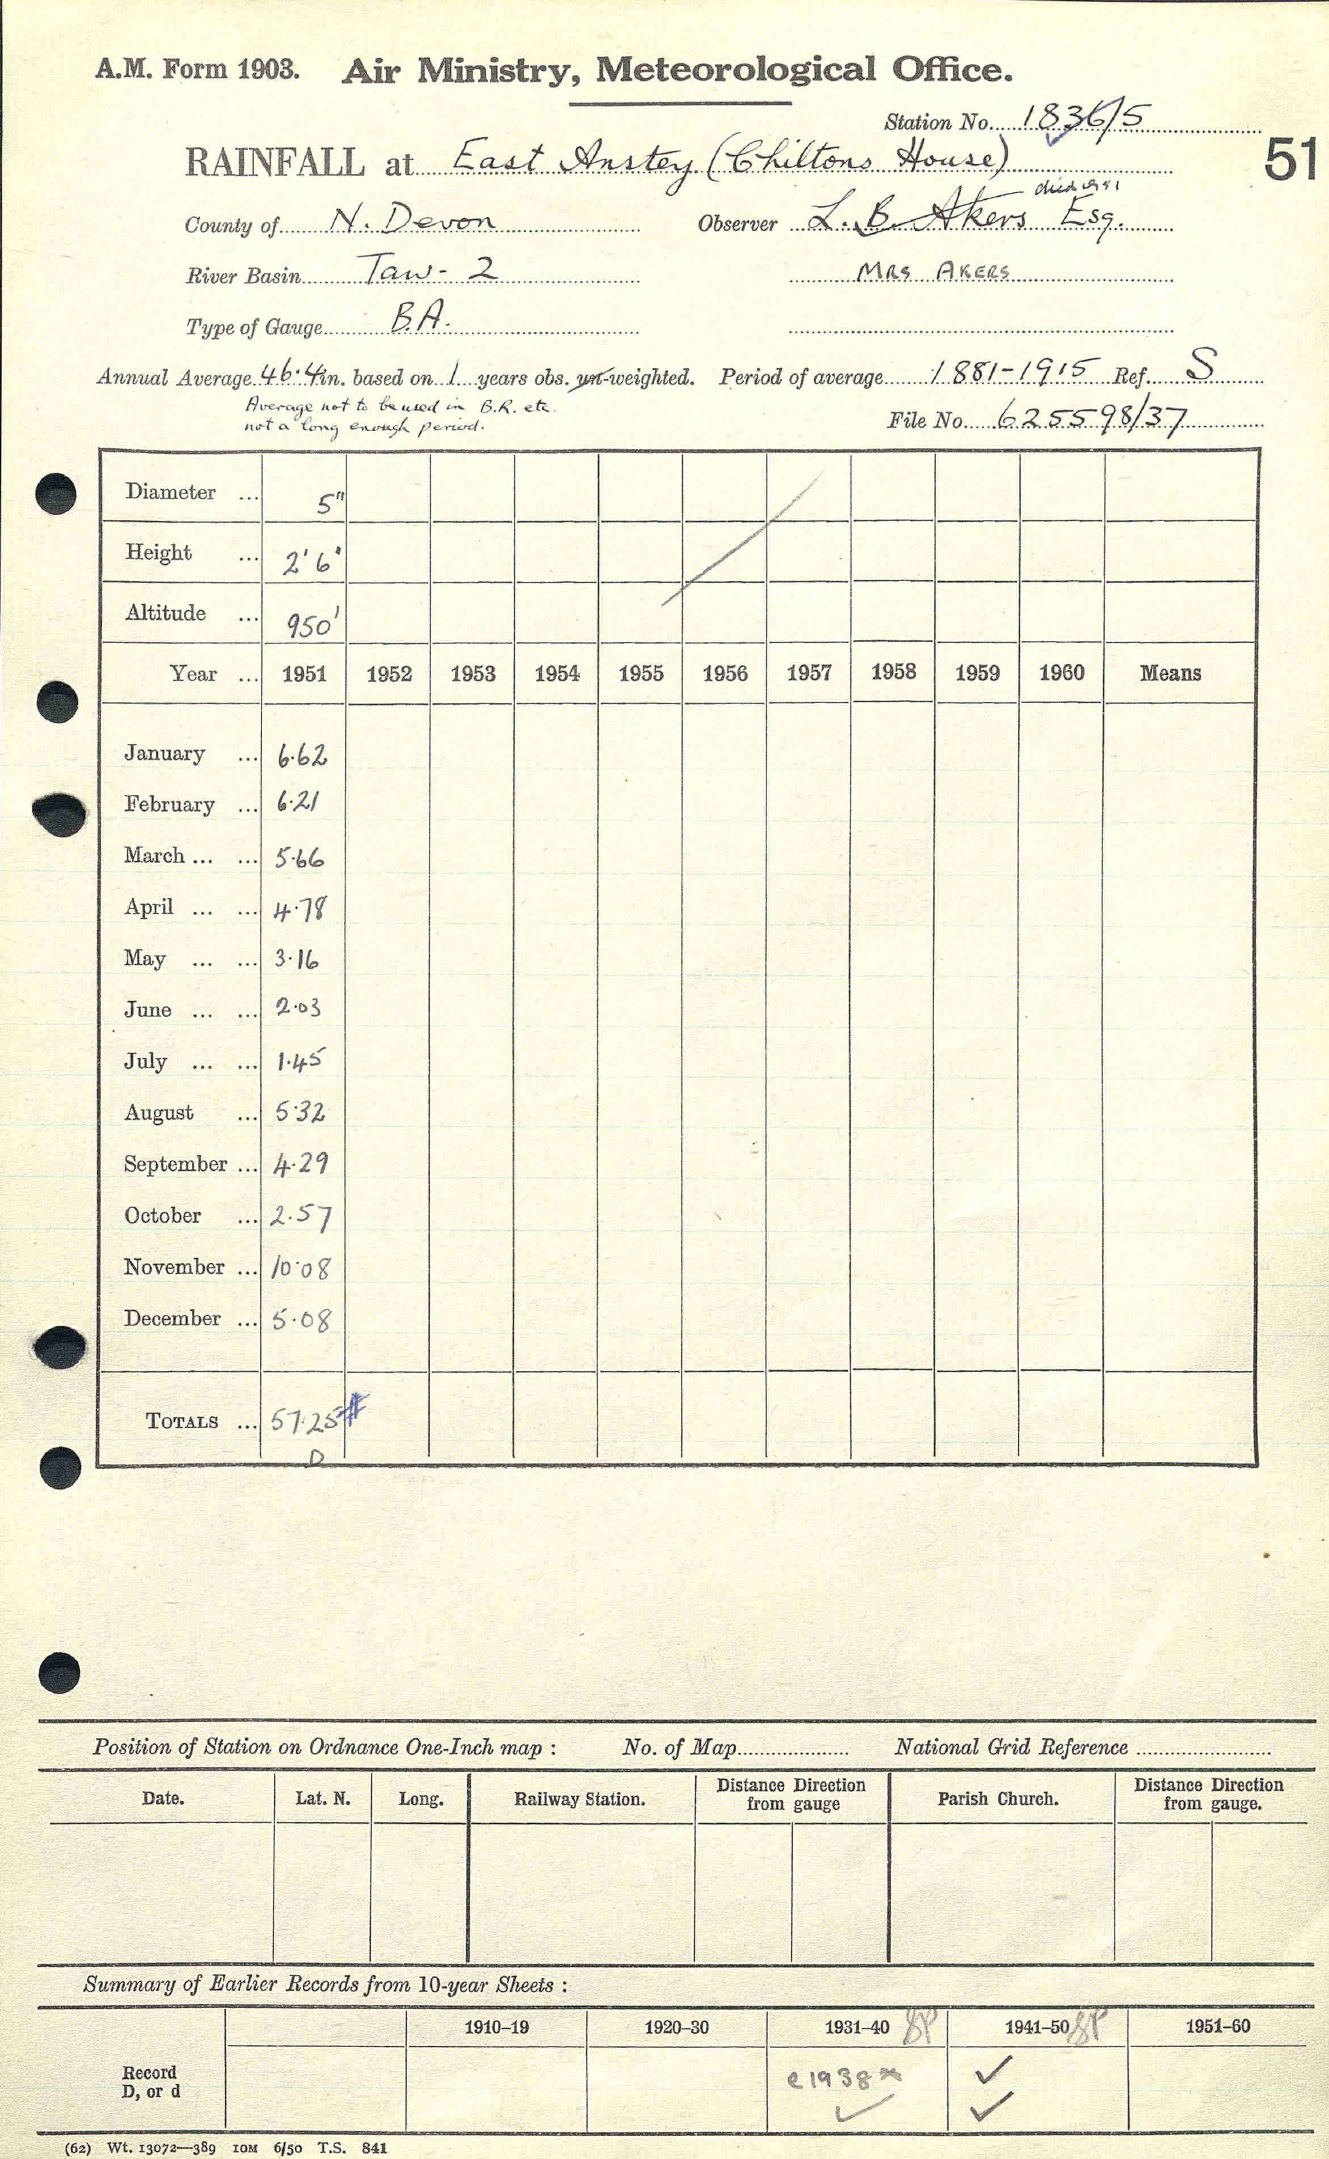 A.M. Form 1903. Air Ministry, Meteorological Office.
Station No. 1836/5
51
RAINFALL at East Anstey (Chiltons House)
died 1951
County of N. Devon Observer L. B. Akers Esq.
River Basin Taw - 2 MRS AKERS
Type of Gauge B.A.
Annual Average 46.4 in. based on 1 years obs. un-weighted. Period of average 1881-1915 Ref. S
Average not to be used in B.R. etc.
not a long enough period.
File No. 625598/37
Diameter ... 5"
Height ... 2'6"
Altitude ... 950'
Year ... 1951 1952 1953 1954 1955 1956 1957 1958 1959 1960 Means
January ... 6.62
February ... 6.21
March ... ... 5.66
April ... ... 4.78
May ... ... 3.16
June ... ... 2.03
July ... ... 1.45
August ... 5.32
September ... 4.29
October ... 2.57
November ... 10.08
December ... 5.08
TOTALS ... 57.25#
D
Position of Station on Ordnance One-Inch map : No. of Map National Grid Reference
Date. Lat. N. Long. Railway Station. Distance Direction Parish Church. Distance Direction
from gauge from gauge.
Summary of Earlier Records from 10-year Sheets :
1910–19 1920–30 1931–40 SP 1941–50 SP 1951–60
Record e1938* ✓
D, or d ✓ ✓
(62) Wt. 13072—389 10M 6/50 T.S. 841